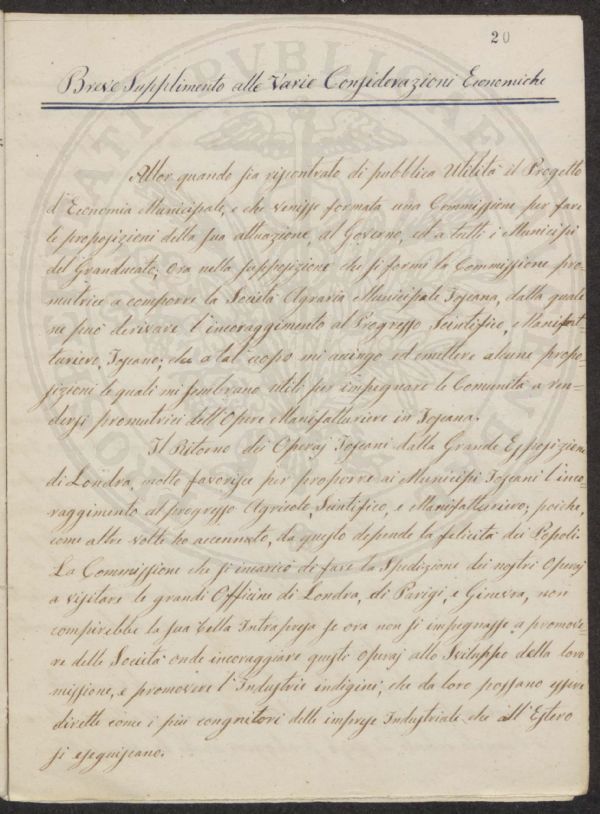 20
Breve Supplimento alle Varie Considerazioni Economiche
Allor quando sia riscontrato di pubblica Utilità il Progetto
d'Economia Municipale, e che venisse formata una Commissione per fare
le proposizioni della sua attuazione, al Governo, ed a tutti i Municipi
del Granducato; Ora nella supposizione che si formi la Commissione pro-
mutrice a comporre la Società Agraria Municipale Toscana, dalla quale
ne può derivare l'incoraggimento al Progresso Scintifico, e Manifat-
turiero, Toscano; che a tal uopo mi accingo ed emettere alcune propo-
sizioni le quali mi sembrano utili per impegnare le Comunità a ren-
dersi promutrici dell'Opere Manifatturiere in Toscana.
Il Ritorno dei Operaj Toscani dalla Grande Esposizione
di Londra, molto favorisce per proporre ai Municipi Toscani l'inco-
raggimento al progresso Agricolo, Scintifico, e Manifatturiero; poiche,
come altre volte ho accennato, da questo depende la felicità dei Popoli.
La Commissione che si incaricò di fare la Spedizione dei nostri Operaj
a visitare le grandi Officine di Londra, di Parigi, e Ginevra, non
compirebbe la sua bella Intrapresa se ora non si impegnasse a promove-
re delle Società onde incoraggiare questi Operaj allo Sviluppo della loro
missione, e promovere l'Industrie indigini, che da loro possano essere
dirette come i più congnitori delle imprese Industriali che all'Estero
si eseguiscano.